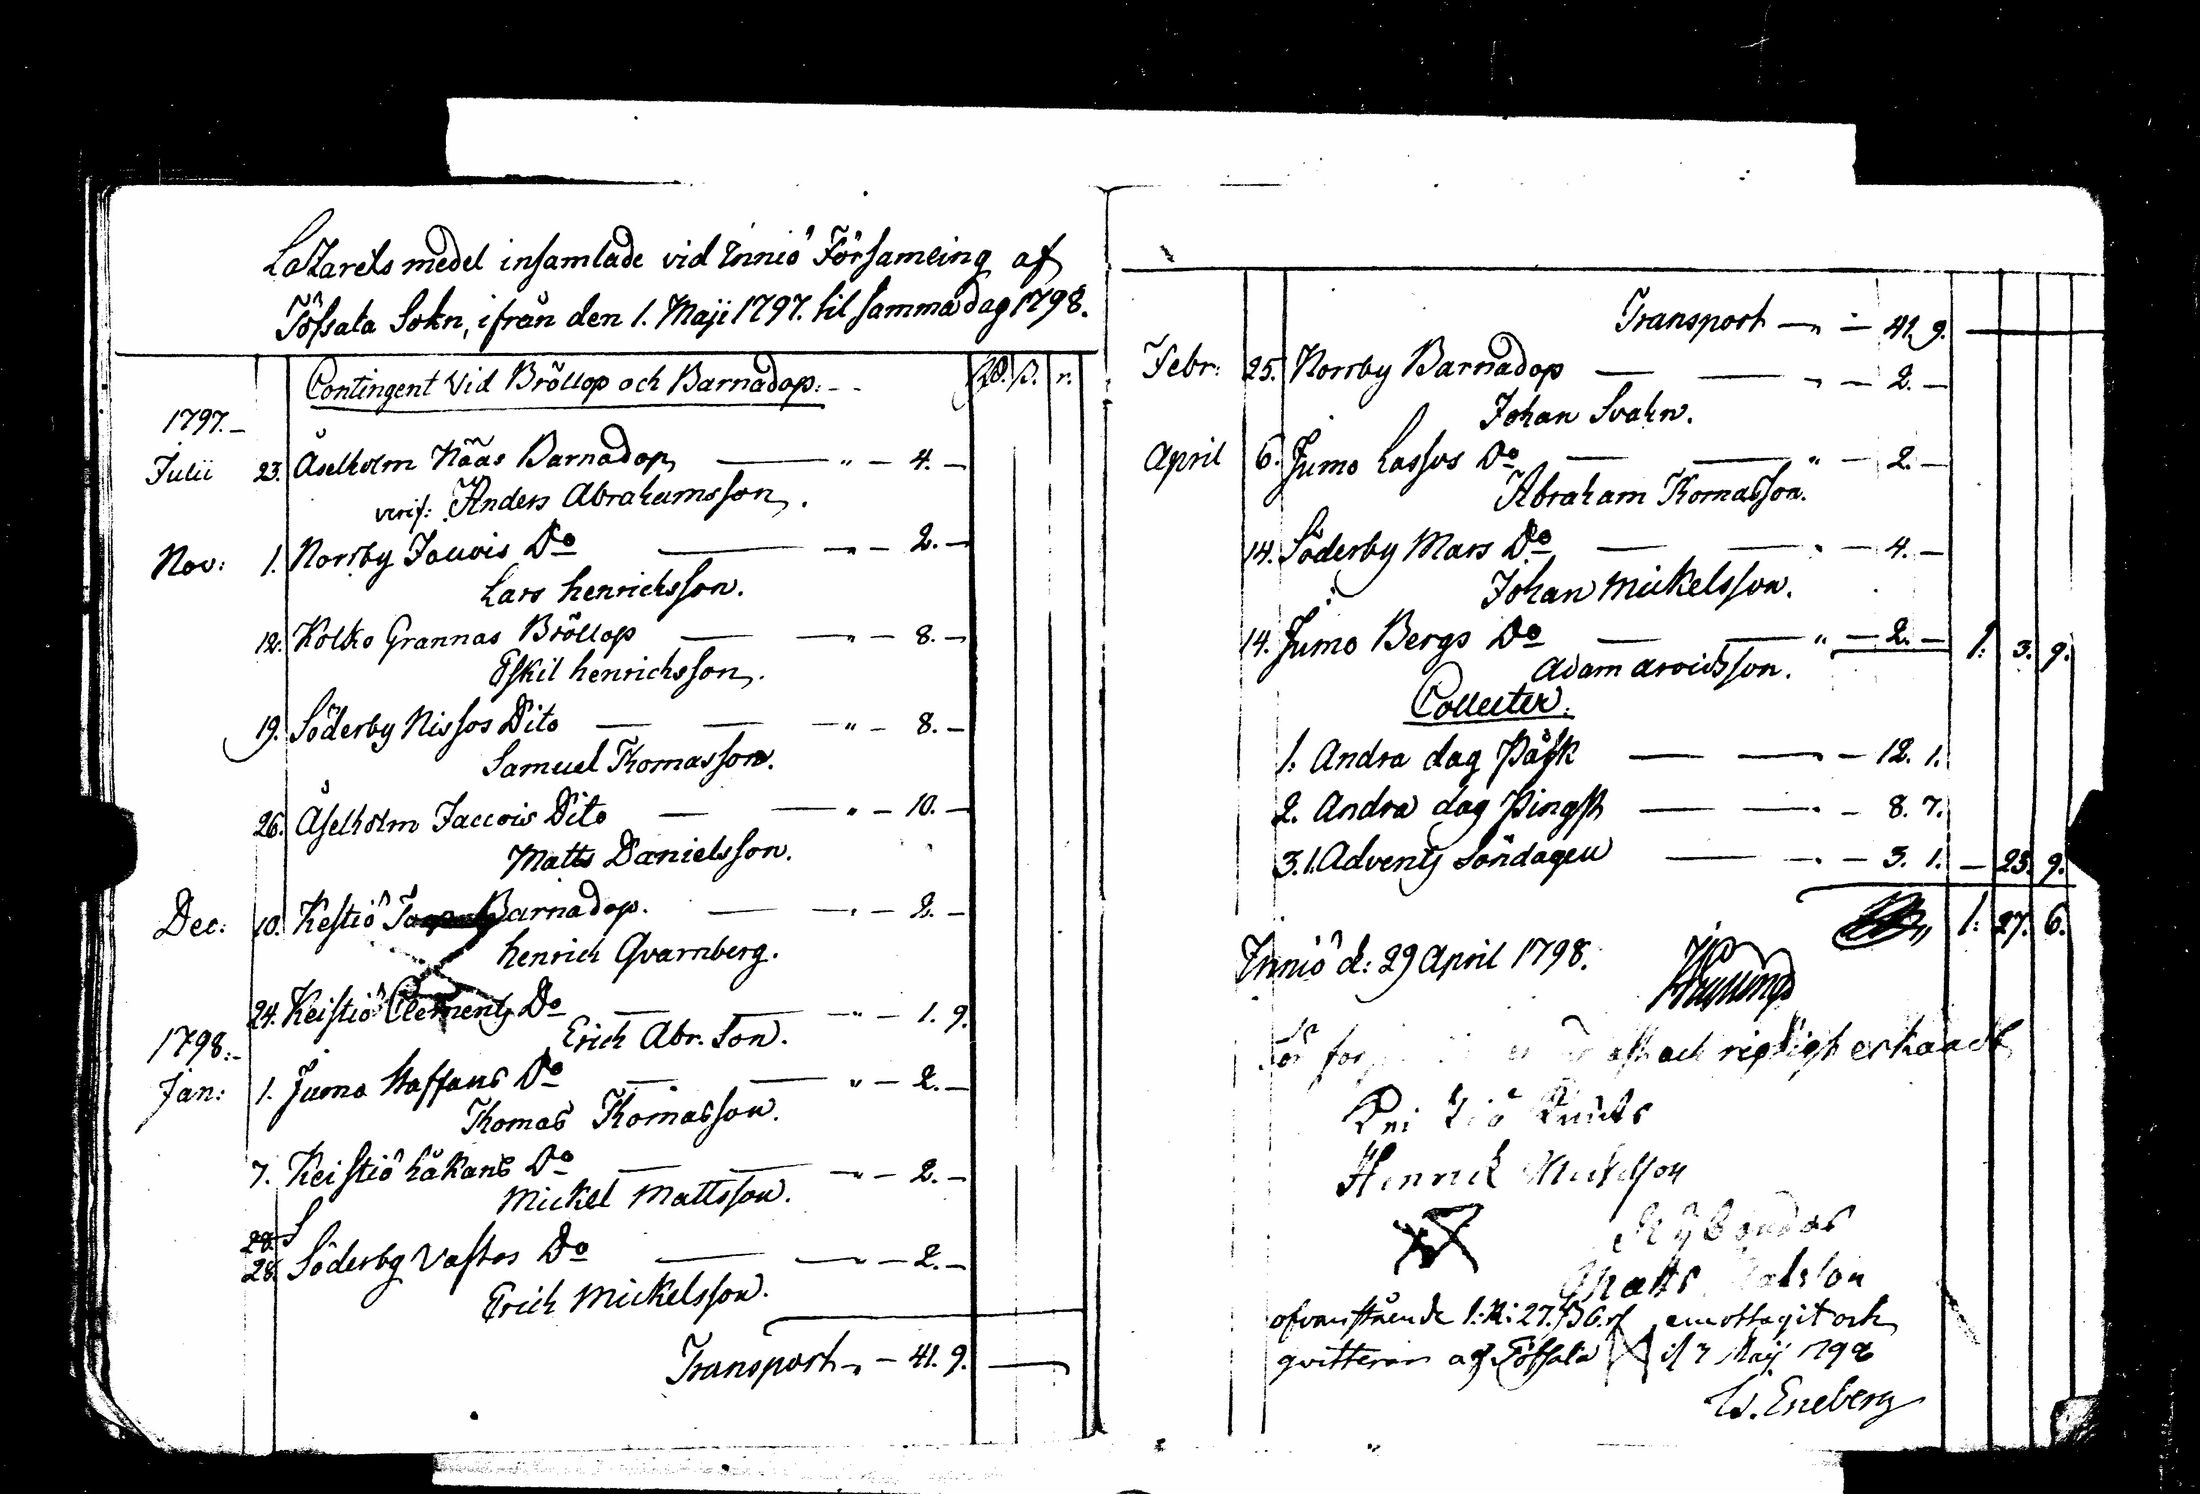 Lazarets medel insamlade vid Innio Församling af
Töfsala Sokn, ifrån den 1. Maji 1797. til samma dag 1798.
Contingent vid Bröllop och Barnadop: - - Rd. ß. r.
1797. -
Julii 23. Åselholm Nääs Barnadop, — " - 4. -
verif: Anders Abrahamsson.
Nov: 1. Norrby Jouvis Do — - 2. -
Lars Henrichsson.
12. Kolko Grannas Bröllop — — " - 8. -
Eskil Henrichsson.
19. Söderby Nissos Dito — — — " - 8. -
Samuel Thomasson.
26. Åselholm Jaccois Dito — — " - 10. -
Matts Danielsson.
Dec: 10. Kestiö Barnadop. — — " - 2. -
Henrich Qvarnberg.
24. Keistiö Clements Do — — " - 1. 9.
Erich Abr. Son.
1798. -
Jan: 1. Jumo Staffans Do — — " - 2. -
Thomas Thomasson.
7. Keistiö Håkans Do — — " - 2. -
Mickel Mattsson.
28. S
28. Söderby Vastos Do — — " - 2. -
Erich Mickelsson.
Transport " - 41. 9. —
Transport — " - 41. 9. —
Febr: 25. Norrby Barnadop — — " - 2. -
Johan Svahn.
April 6. Jumo Lassos Do — — " - 2. -
Abraham Thomasson.
14. Söderby Mars Do — — " - 4. -
Johan Mickelsson.
14. Jumo Bergs Do — — " - 2. - 1. 3. 9.
Adam Arvidsson.
Collecter.
1. Andra dag Påsk — — " - 12. 1.
2. Andra dag Pingst — — " - 8. 7.
3. 1. Advents Söndagen — " - 3. 1. - 23. 9.
" 1. 27. 6.
Iniö d: 29 April 1798.
och rigtigt erkändt
Knuts
Henrick Mickelsson
Matts
ofvanstående 1. R: 27. ß 6. r emottagit och
qvitteras af Töfsala d 7 Maij 1798
W. Eneberg